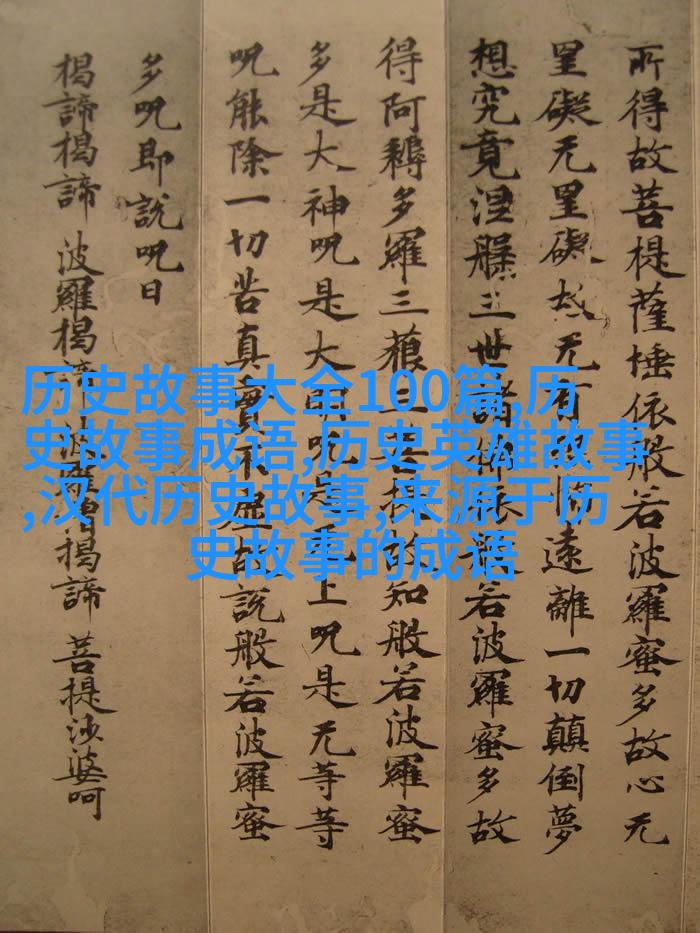 所得故菩提薩埵依般若波羅蜜多故心无
罣礙无罣礙故无有恐怖遠離一切顛倒夢
想究竟涅槃三世諸佛依般若波羅蜜多故
得阿耨多羅三藐三菩提故知般若波羅蜜
多是大神呪是大明呪是无上呪是无等等
呪能除一切苦真實不虛故說般若波羅蜜
多呪即說呪曰
揭諦揭諦 波羅揭諦 波羅僧揭諦 菩提沙婆呵
历史故事大全100篇,历
史故事成语,历史英雄故事
,汉代历史故事,来源于历
史故事的成语